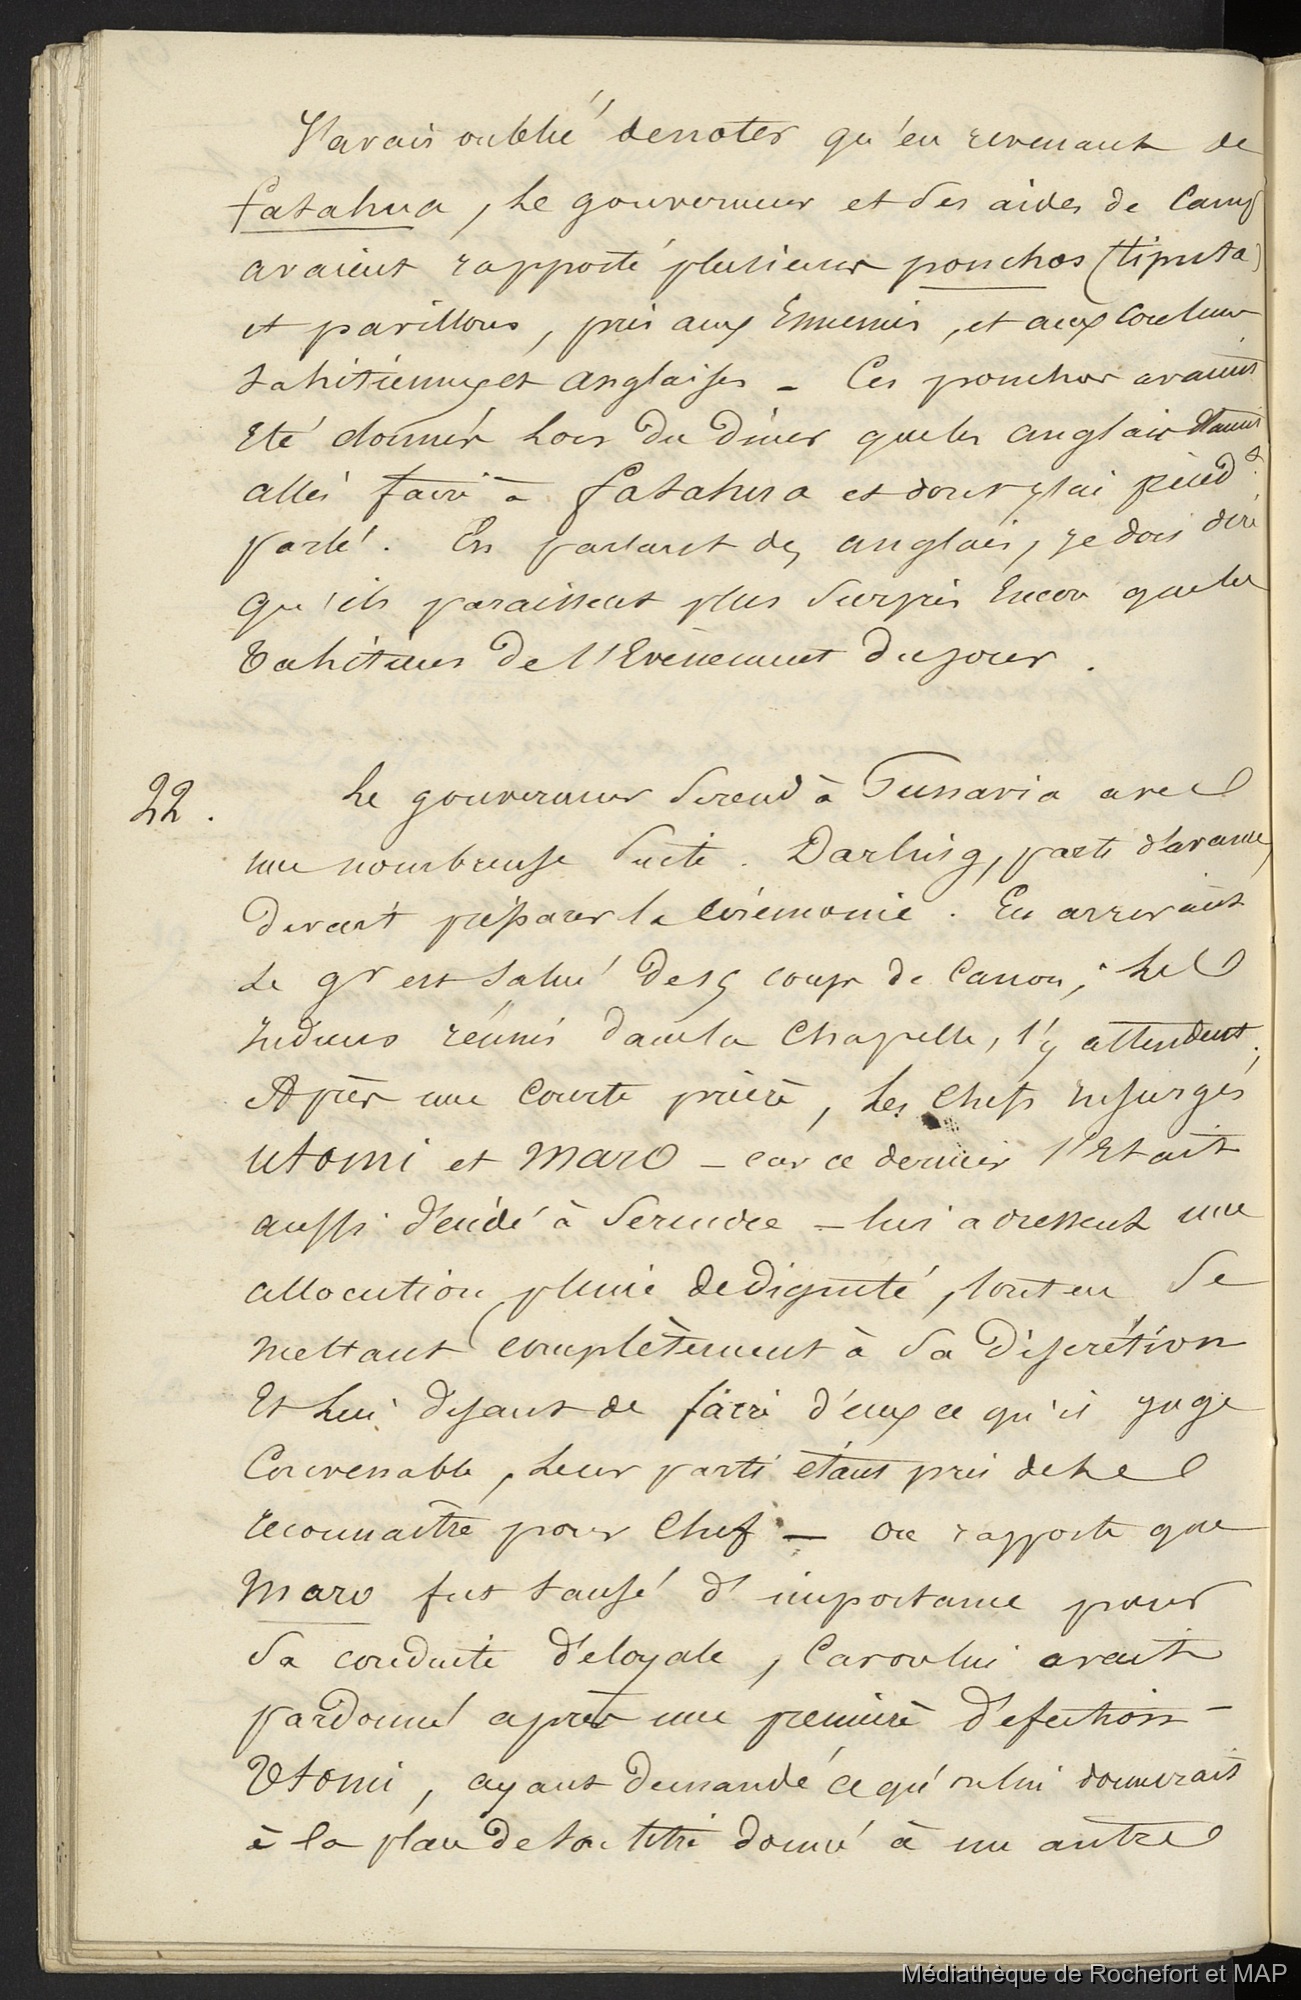 J'avais oublié de noter qu'en revenant de
fatahua, le gouverneur et ses aides de camp
avaient rapporté plusieurs ponchos (tiputa)
et pavillons, pris aux Ennemis, et aux couleurs
tahitiennes et anglaises - Ces ponchos avaient
Eté donnés lors du diner que les anglais étaient
allés faire à fatahua et dont j'ai
parlé. En parlant des anglais, je dois dire
qu'ils paraissent plus surpris Encore que les
Tahitiens de l'Evènement du jour.
22. Le gouverneur se rend à Punavia avec
une nombreuse suite. Darling, parti d'avance,
devait préparer la cérémonie. En arrivant
le gr est salué de 5 coups de Canon; les
Indiens réunis dans la Chapelle, l'y attendent.
Après une courte prière, les chefs Insurgés
Utomi et Maro - car ce dernier s'Etait
aussi décidé à se rendre - lui adressent une
allocution pleine de dignité, tout en se
mettant complètement à sa discrétion
Et lui disant de faire d'eux ce qu'il juge
Convenable, leur parti étant pris de le
reconnaitre pour Chef - On rapporte que
Maro fut tansé d'importance pour
sa conduite déloyale, Car on lui avait
pardonné après une première défection -
Utomi, ayant demandé ce qu'on lui donnerait
à la place de son titre donné à un autre
Médiathèque de Rochefort et MAP